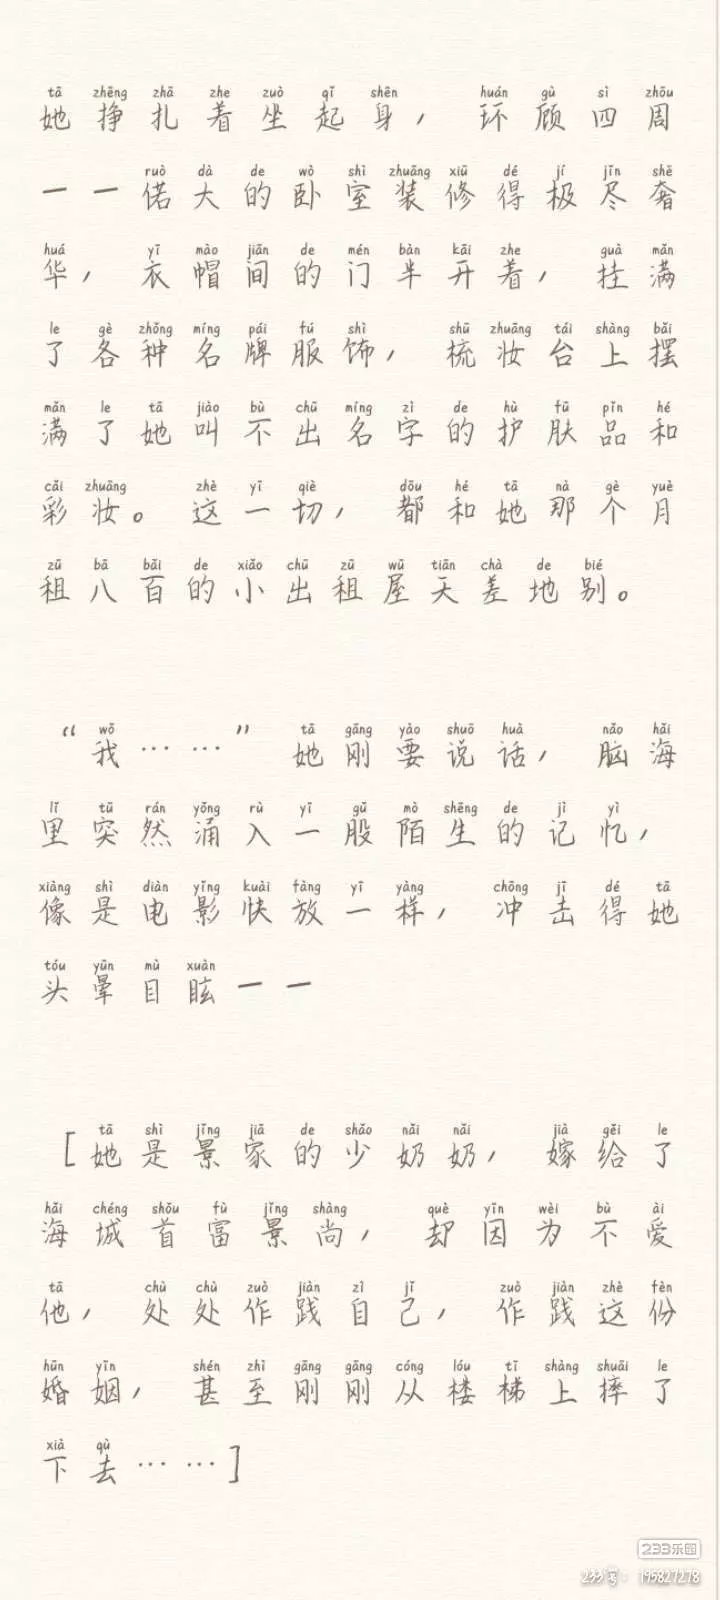 tā zhēng zhā zhe zuò qǐ shēn huán gù sì zhōu
她挣扎着坐起身，环顾四周
ruò dà de wò shì zhuāng xiū dé jí jǐn shē
——偌大的卧室装修得极尽奢
huá yī mào jiān de mén bàn kāi zhe guà mǎn
华，衣帽间的门半开着，挂满
le gè zhǒng míng pái fú shì shū zhuāng tái shàng bǎi
了各种名牌服饰，梳妆台上摆
mǎn le tā jiào bù chū míng zì de hù fū pǐn hé
满了她叫不出名字的护肤品和
cǎi zhuāng zhè yī qiè dōu hé tā nà gè yuè
彩妆。这一切，都和她那个月
zū bā bǎi de xiǎo chū zū wū tiān chà de bié
租八百的小出租屋天差地别。
wǒ tā gāng yào shuō huà nǎo hǎi
“我……”她刚要说话，脑海
lǐ tū rán yǒng rù yī gǔ mò shēng de jì yì
里突然涌入一股陌生的记忆，
xiàng shì diàn yǐng kuài fàng yī yàng chōng jī dé tā
像是电影快放一样，冲击得她
tóu yūn mù xuàn
头晕目眩——
tā shì jǐng jiā de shǎo nǎi nǎi jià gěi le
[她是景家的少奶奶，嫁给了
hǎi chéng shǒu fù jǐng shàng què yīn wèi bù ài
海城首富景尚，却因为不爱
tā chù chù zuò jiàn zì jǐ zuò jiàn zhè fèn
他，处处作践自己，作践这份
hūn yīn shén zhì gāng gāng cóng lóu tī shàng shuāi le
婚姻，甚至刚刚从楼梯上摔了
xià qù
下去……]
233乐园
233号：195827278